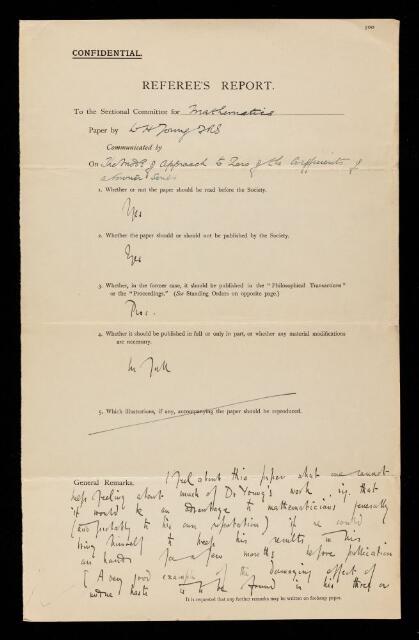 300
CONFIDENTIAL.
REFEREE'S REPORT.
To the Sectional Committee for Mathematics
Paper by W H Young FRS
Communicated by
On The Mode of Approach to Zero of the Coefficients of
a Fourier Series
1. Whether or not the paper should be read before the Society.
Yes
2. Whether the paper should or should not be published by the Society.
Yes
3. Whether, in the former case, it should be published in the "Philosophical Transactions"
or the "Proceedings." (See Standing Orders on opposite page.)
Proc.
4. Whether it should be published in full or only in part, or whether any material modifications
are necessary.
In full
5. Which illustrations, if any, accompanying the paper should be reproduced.
General Remarks. I feel about this paper what one cannot
help feeling about much of Dr Young's work, viz. that
it would be an advantage to mathematicians generally
(and probably to his own reputation) if he could
bring himself to keep his results in his
own hands for a few months before publication
[A very good example of the damaging effect of
undue haste is to be found in his three or
It is requested that any further remarks may be written on foolscap paper.